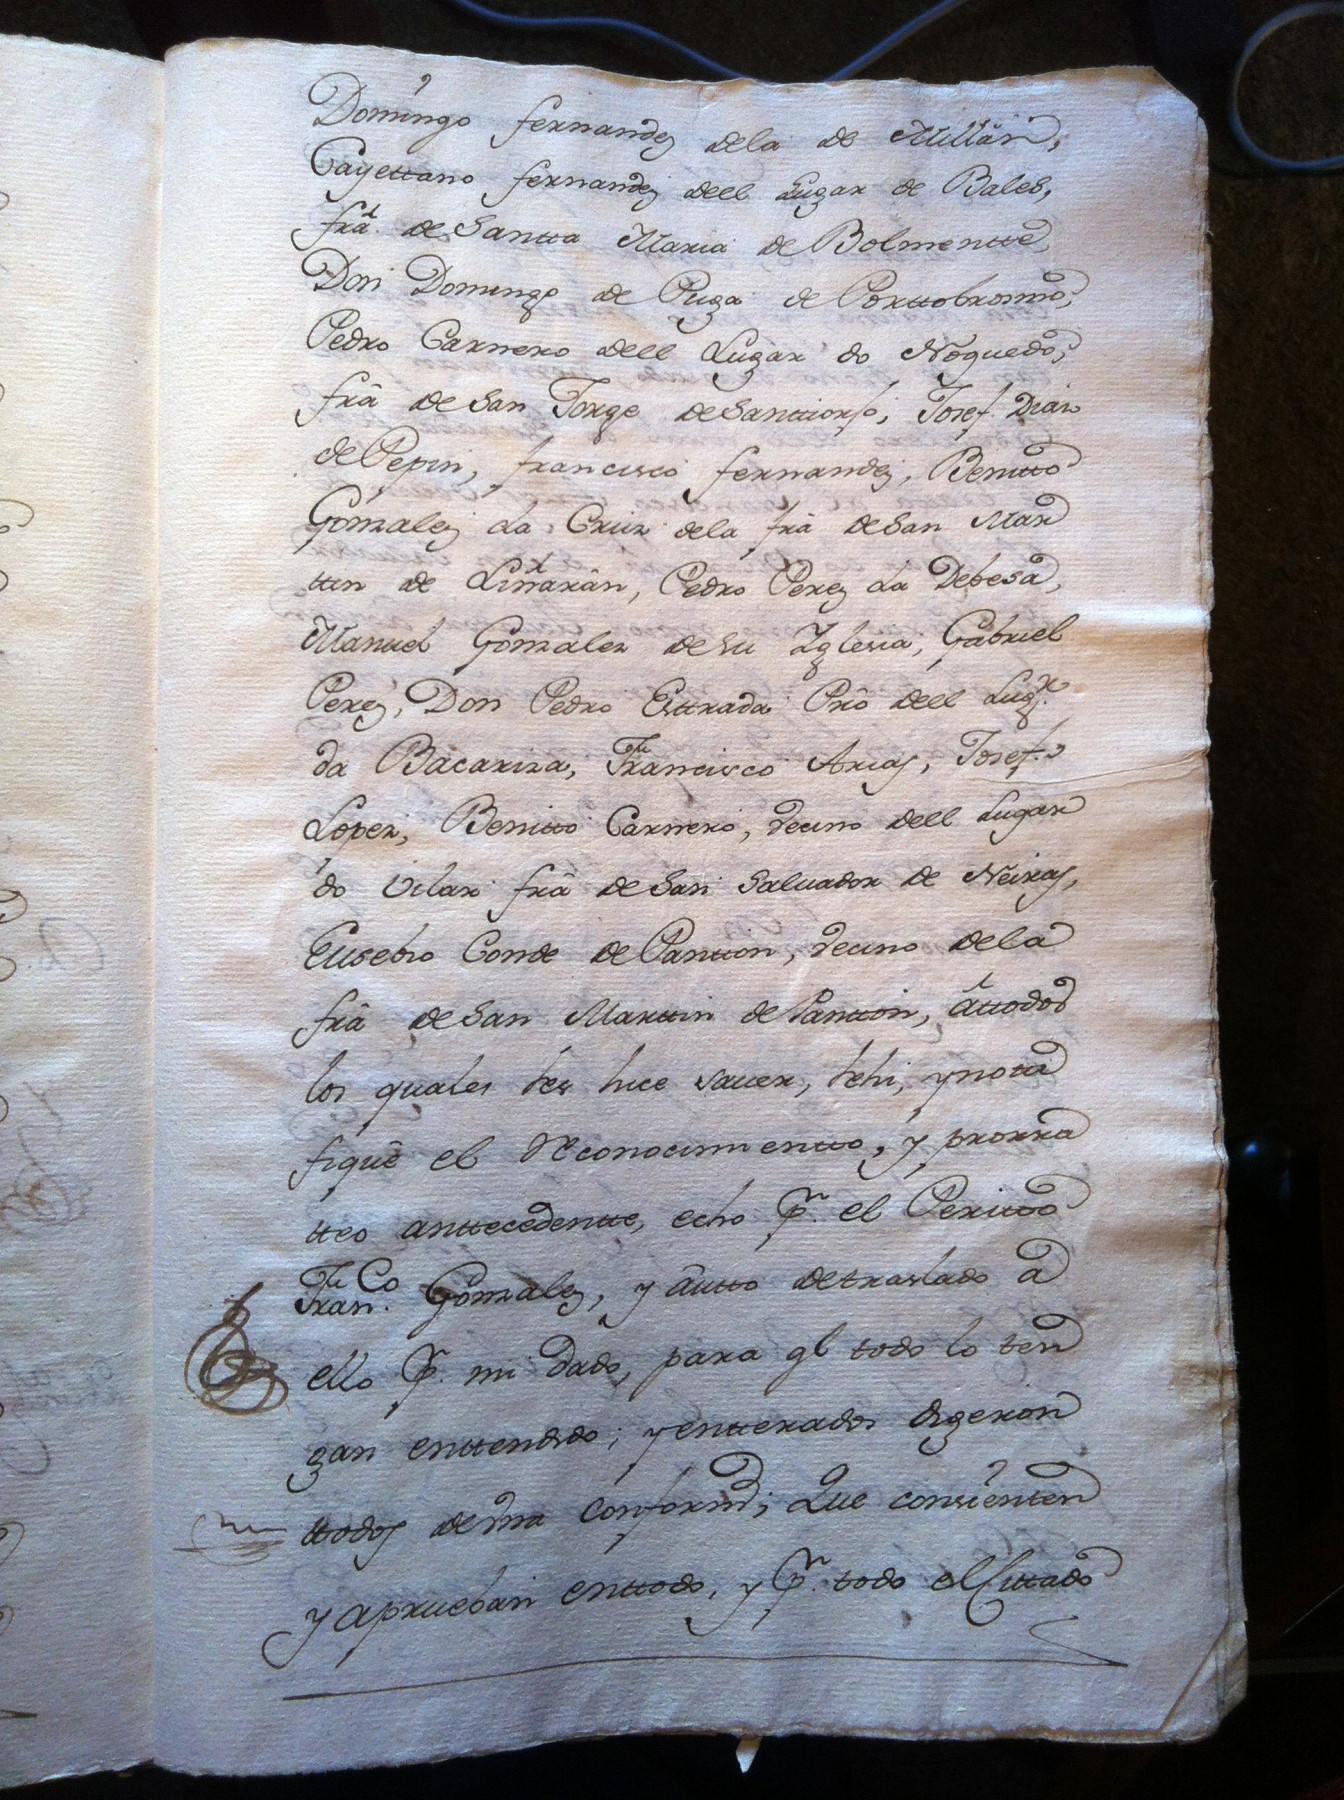 Domingo fernandez dela de Millàn,
Cayettano fernandez dell Lugar de Bales,
frâ. de Santta Maria de Bolmentte,
Don Domingo de Puga de Porttobromo,
Pedro Carnero dell Lugar do Noguedo,
frâ de San Jorge de Santtiorjo, Josef. Dian
de Pepin, francisco fernandez, Benitto
Gonzalez La Cruz dela frâ de San Mar
ttin de Liñaràn, Pedro Perez La Debesa,
Manuel Gonzalez de su Yglesia, Gabriel
Perez, Don Pedro Esttrada Prô dell Lugr.
da Bacariza, Francisco Arias, Josef.
Lopez, Benitto Carnero, vecino dell Lugar
do Vilar frâ de San Salvador de Neiras,
Eusebio Conde de Pantton, vecino dela
frâ de San Marttin de Pantton, âttodos
los quales les hice saver, lehi, y notti
fiquê el Reconocimientto, y prorra
tteo anttecedentte, echo pr. el Peritto
Franco. Gonzalez, y âutto de traslado a
ello pr. mi dado, para ql todo lo ten
gan enttendido; y entterados digeron
ttodos de una conformd; Que consienten
y aprueban enttodo, y pr. todo el Cittado